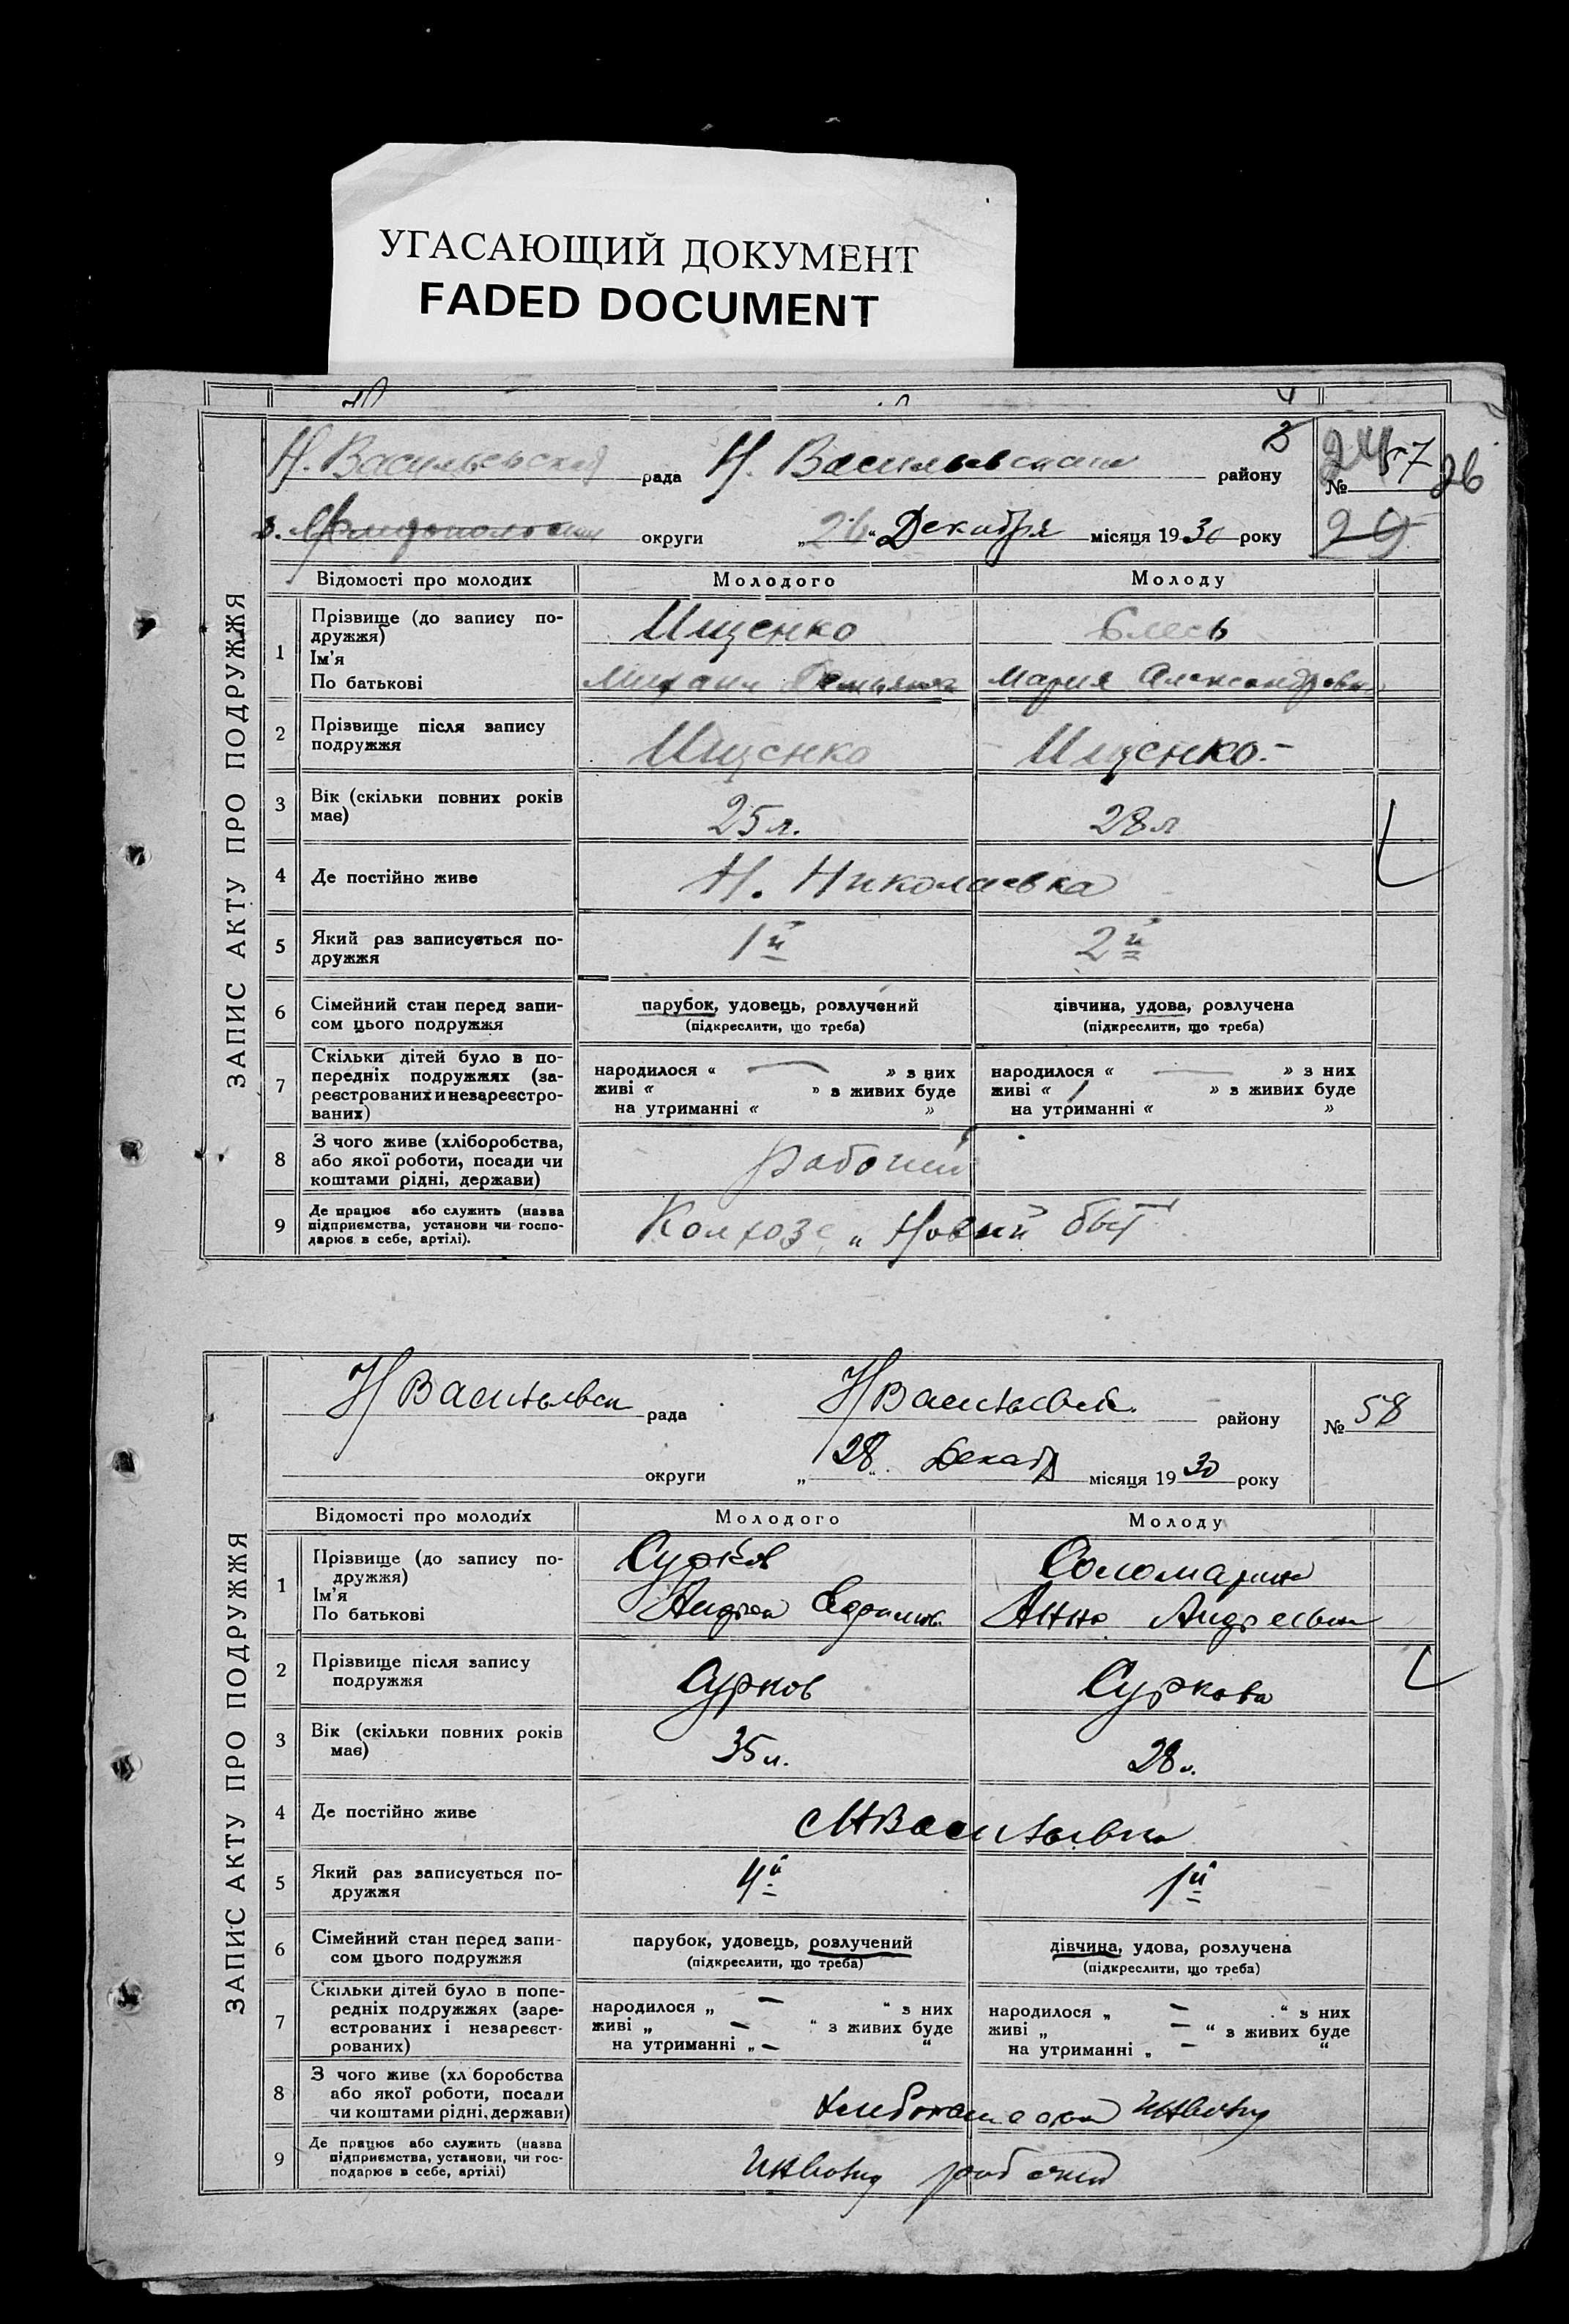 УГАСАЮЩИЙ ДОКУМЕНТ
FADED DOCUMENT
ЗАПИС АКТУ ПРО ПОДРУЖЖЯ
Н. Васильевская рада Н. Васильевский району № 57 26
округи „26“ Декабря місяця 1930 року
Відомості про молодих Молодого Молоду
1 Прізвище (до запису по-
дружжя)
Ім'я
По батькові
Ищенко Блесь
Михаил Мария Александровн
2 Прізвище після запису
подружжя
Ищенко Ищенко-
3 Вік (скільки повних років
має)
25 л. 28 л
4 Де постійно живе Н. Николаевка
5 Який раз записується по-
дружжя
1й 2й
6 Сімейний стан перед запи-
сом цього подружжя
парубок, удовець, розлучений дівчина, удова, розлучена
(підкреслити, що треба) (підкреслити, що треба)
7 Скільки дітей було в по-
передніх подружжях (за-
реєстрованих и незареєстро-
ваних)
народилося « — » з них народилося « — » з них
живі « » з живих буде живі « 1 » з живих буде
на утриманні « » на утриманні « »
8 З чого живе (хліборобства,
або якої роботи, посади чи
коштами рідні, держави)
рабочий
9 Де працює або служить (назва
підприємства, установи чи госпо-
дарює в себе, артілі).
Колхозе „Новий быт
ЗАПИС АКТУ ПРО ПОДРУЖЖЯ
Н Васильевск рада Н Васильевск. району № 58
округи „28“ Декабр місяця 1930 року
Відомості про молодих Молодого Молоду
1 Прізвище (до запису по-
дружжя)
Ім'я
По батькові
Сурков
Андрей Анна Андреевна
2 Прізвище після запису
подружжя
Сурков Суркова
3 Вік (скільки повних років
має)
35 л. 28 л.
4 Де постійно живе НВасильевка
5 Який раз записується по-
дружжя
4й 1й
6 Сімейний стан перед запи-
сом цього подружжя
парубок, удовець, розлучений дівчина, удова, розлучена
(підкреслити, що треба) (підкреслити, що треба)
7 Скільки дітей було в попе-
редніх подружжях (заре-
єстрованих і незареєст-
рованих)
народилося „ — “ з них народилося „ — “ з них
живі „ — “ з живих буде живі „ — “ з живих буде
на утриманні „ — “ на утриманні „ — “
8 З чого живе (хл боробства
або якої роботи, посади
чи коштами рідні, держави)
9 Де працює або служить (назва
підприємства, установи, чи гос-
подарює в себе, артілі)
рабочий